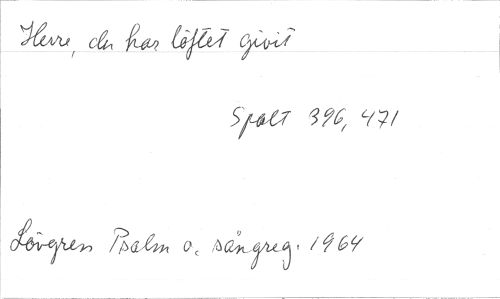 Herre, du har löftet givit
Spalt 396, 471
Lövgren Psalm o. sångreg. 1964